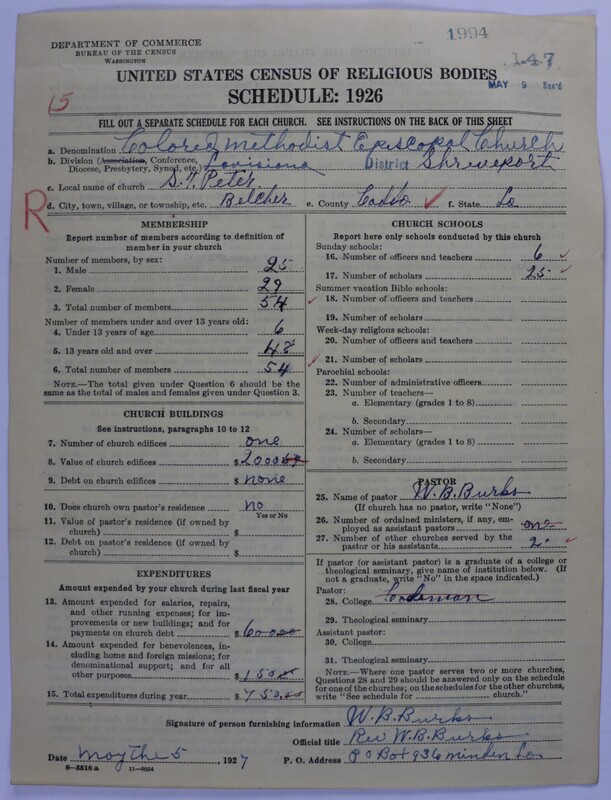 1994
DEPARTMENT OF COMMERCE
BUREAU OF THE CENSUS
WASHINGTON
1-4-7
MAY 9 Rec'd
UNITED STATES CENSUS OF RELIGIOUS BODIES
SCHEDULE: 1926
15
FILL OUT A SEPARATE SCHEDULE FOR EACH CHURCH. SEE INSTRUCTIONS ON THE BACK OF THIS SHEET
a. Denomination Colored Methodist Episcopal Church
b. Division (Association, Conference, Diocese, Presbytery, Synod, etc.) Lovisiana District Shreveport
c. Local name of church S.T. Peter
R
d. City, town, village, or township, etc. Belcher e. County Caddo f. State La
MEMBERSHIP
Report number of members according to definition of
member in your church
Number of members, by sex:
1. Male 25
2. Female 29
3. Total number of members 54
Number of members under and over 13 years old:
4. Under 13 years of age 6
5. 13 years old and over 48
6. Total number of members 54
NOTE.—The total given under Question 6 should be
the same as the total of males and females given under Question 3.
CHURCH BUILDINGS
See instructions, paragraphs 10 to 12
7. Number of church edifices one
8. Value of church edifices $ 2000
9. Debt on church edifices $ none
10. Does church own pastor's residence no
Yes or No
11. Value of pastor's residence (if owned by
church) $
12. Debt on pastor's residence (if owned by
church) $
EXPENDITURES
Amount expended by your church during last fiscal year
13. Amount expended for salaries, repairs,
and other running expenses; for im-
provements or new buildings; and for
payments on church debt $ 600.00
14. Amount expended for benevolences, in-
cluding home and foreign missions; for
denominational support; and for all
other purposes $ 150.00
15. Total expenditures during year $ 750.00
CHURCH SCHOOLS
Report here only schools conducted by this church
Sunday schools:
16. Number of officers and teachers 6
17. Number of scholars 25
Summer vacation Bible schools:
18. Number of officers and teachers
19. Number of scholars
Week-day religious schools:
20. Number of officers and teachers
21. Number of scholars
Parochial schools:
22. Number of administrative officers
23. Number of teachers—
a. Elementary (grades 1 to 8)
b. Secondary
24. Number of scholars—
a. Elementary (grades 1 to 8)
b. Secondary
PASTOR
25. Name of pastor W.B. Burks
(If church has no pastor, write "None")
26. Number of ordained ministers, if any, em-
ployed as assistant pastors one
27. Number of other churches served by the
pastor or his assistants 2
If pastor (or assistant pastor) is a graduate of a college or
theological seminary, give name of institution below. (If
not a graduate, write "No" in the space indicated.)
Pastor:
28. College
29. Theological seminary
Assistant pastor:
30. College
31. Theological seminary
NOTE.—Where one pastor serves two or more churches,
Questions 28 and 29 should be answered only on the schedule
for one of the churches; on the schedules for the other churches,
write "See schedule for ______ church."
Signature of person furnishing information W.B. Burks
Official title Rev W.B. Burks
Date May the 5, 1927 P. O. Address P O Box 936 minden La
8-5518 a 11-9034